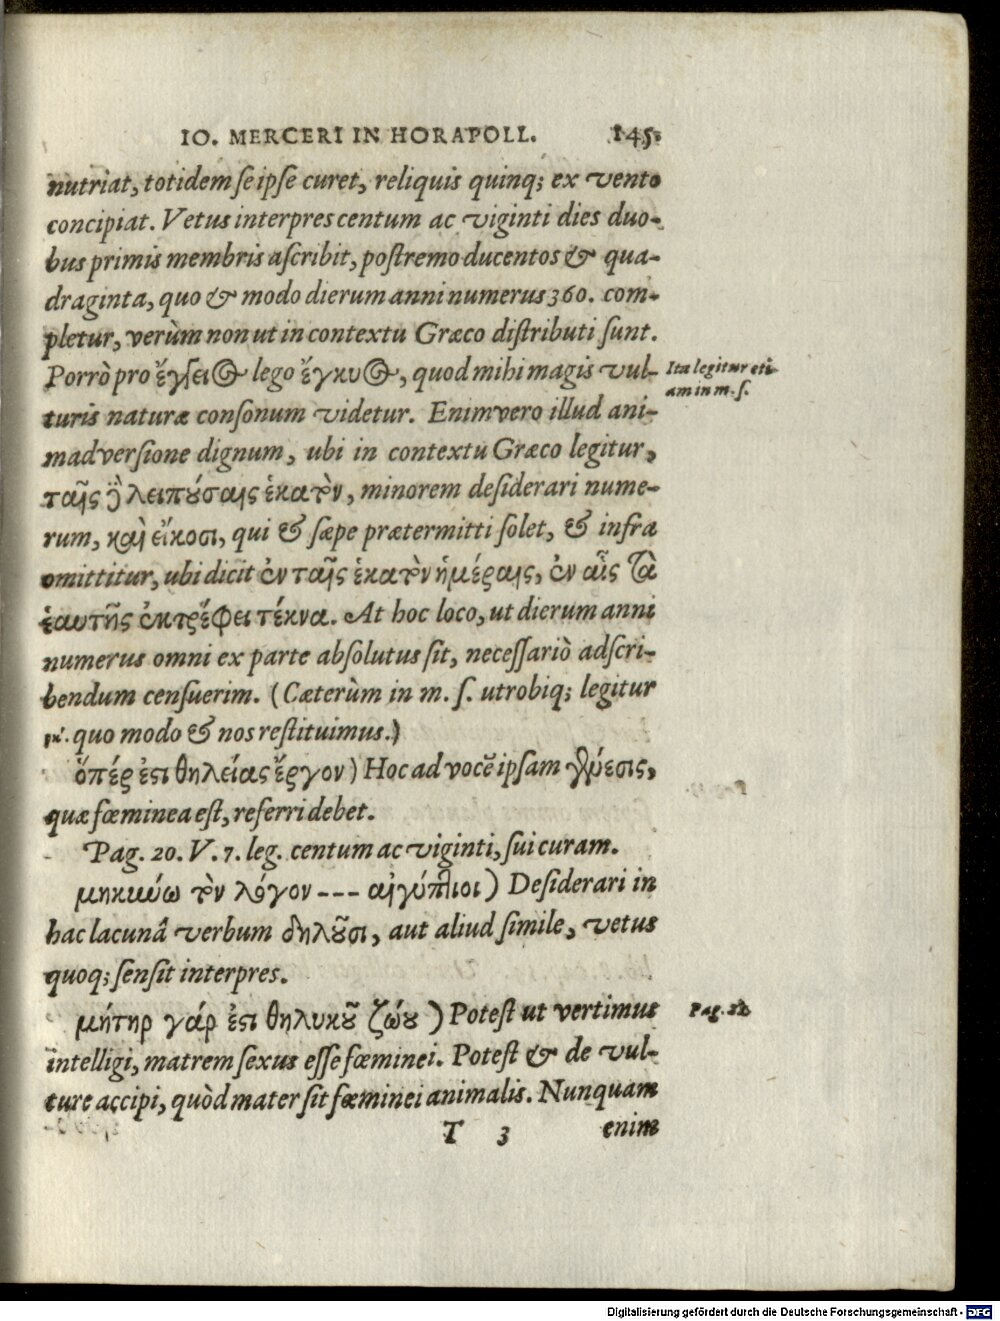 IO. MERCERI IN HORAPOLL. 145.
nutriat, totidem se ipse curet, reliquis quinq; ex vento
concipiat. Vetus interpres centum ac viginti dies duo-
bus primis membris ascribit, postremo ducentos & qua-
draginta, quo & modo dierum anni numerus 360. com-
pletur, verùm non ut in contextu Græco distributi sunt.
Porrò pro ἔγγειος lego ἔγκυος, quod mihi magis vul-
Ita legitur eti-
am in m. s.
turis naturæ consonum videtur. Enimvero illud ani-
madversione dignum, ubi in contextu Græco legitur,
ταῖς ἢ λειπούσαις ἑκατὸν, minorem desiderari nume-
rum, καὶ εἴκοσι, qui & sæpe prætermitti solet, & infra
omittitur, ubi dicit ἐν ταῖς ἑκατὸν ἡμέραις, ἐν αἷς τὰ
ἑαυτῆς ἐκτρέφει τέκνα. At hoc loco, ut dierum anni
numerus omni ex parte absolutus sit, necessariò adscri-
bendum censuerim. (Cæterùm in m. s. utrobiq; legitur
ρκʹ. quo modo & nos restituimus.)
ὅπέρ ἐστι θηλείας ἔργον) Hoc ad vocē ipsam γύεσις,
quæ fœminea est, referri debet.
Pag. 20. V. 7. leg. centum ac viginti, sui curam.
μηκύνω τὸν λόγον --- αἰγύπτιοι) Desiderari in
hac lacunâ verbum δηλοῦσι, aut aliud simile, vetus
quoq; sensit interpres.
μήτηρ γάρ ἐστι θηλυκοῦ ζώου) Potest ut vertimus
Pag. 22.
intelligi, matrem sexus esse fœminei. Potest & de vul-
ture accipi, quòd mater sit fœminei animalis. Nunquam
T 3 enim
Digitalisierung gefördert durch die Deutsche Forschungsgemeinschaft - DFG